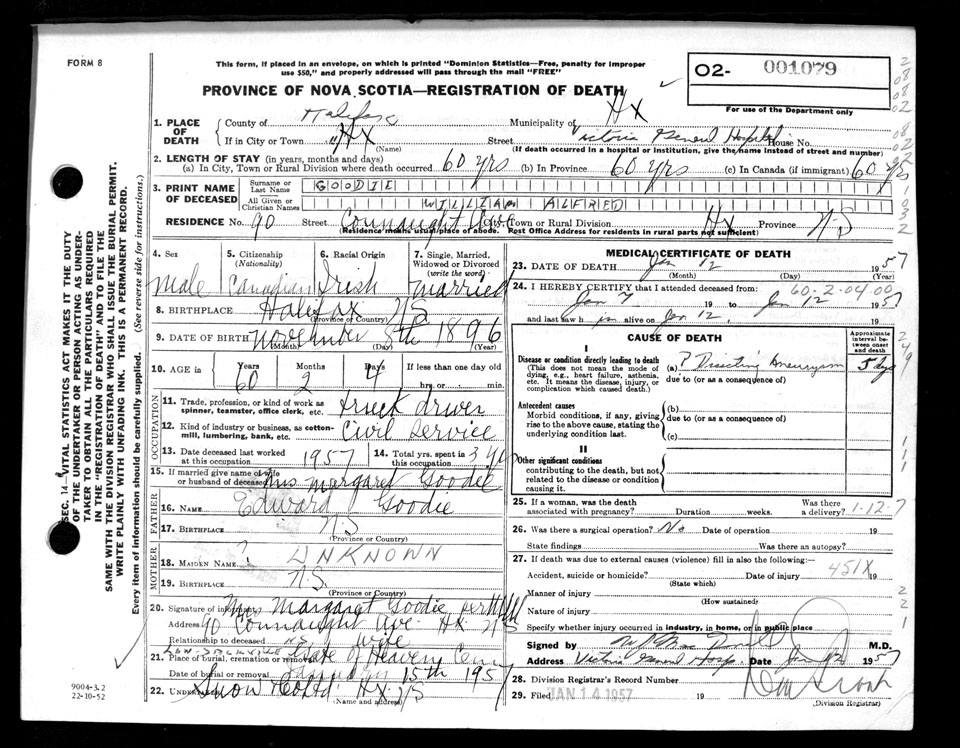 FORM 8
This form, if placed in an envelope, on which is printed "Dominion Statistics—Free, penalty for improper
use $50," and properly addressed will pass through the mail "FREE"
O2- 001079
For use of the Department only
PROVINCE OF NOVA SCOTIA—REGISTRATION OF DEATH
1. PLACE OF DEATH
County of Halifax Municipality of Hx
If in City or Town Hx Street Victoria General Hospital House No.
(Name) (If death occurred in a hospital or institution, give the name instead of street and number)
2. LENGTH OF STAY (in years, months and days)
(a) In City, Town or Rural Division where death occurred 60 yrs (b) In Province 60 yrs (c) In Canada (if immigrant) 60 yrs
3. PRINT NAME OF DECEASED
Surname or Last Name GOODIE
All Given or Christian Names WILLIAM ALFRED
RESIDENCE No. 90 Street Connaught Ave Town or Rural Division Hx Province N.S
(Residence means usual place of abode. Post Office Address for residents in rural parts not sufficient)
4. Sex Male
5. Citizenship (Nationality) Canadian
6. Racial Origin Irish
7. Single, Married, Widowed or Divorced (write the word) Married
8. BIRTHPLACE Halifax N/S
(Province or Country)
9. DATE OF BIRTH November 8th 1896
(Month) (Day) (Year)
10. AGE in Years 60 Months 2 Days 4 If less than one day hrs. or min.
OCCUPATION
11. Trade, profession, or kind of work as spinner, teamster, office clerk, etc. truck driver
12. Kind of industry or business, as cotton-mill, lumbering, bank, etc. Civil Service
13. Date deceased last worked at this occupation 1957
14. Total yrs. spent in this occupation 3 yrs
15. If married give name of wife or husband of deceased Mrs Margaret Goodie
FATHER
16. NAME Edward Goodie
17. BIRTHPLACE N.S
(Province or Country)
MOTHER
18. MAIDEN NAME ? UNKNOWN
19. BIRTHPLACE N.S.
(Province or Country)
20. Signature of informant Mrs Margaret Goodie per
Address 90 Connaught Ave. Hx. N/S
Relationship to deceased wife
21. Place of burial, cremation or removal Gate of Heaven Cem
Date of burial or removal January 15th 1957
22. UNDERTAKER Snow & Co Ltd. Hx N/S
(Name and address)
MEDICAL CERTIFICATE OF DEATH
23. DATE OF DEATH Jan 12 1957
(Month) (Day) (Year)
24. I HEREBY CERTIFY that I attended deceased from: 60-2-04.00
Jan 7 19 to Jan 12 1957
and last saw him alive on Jan 12, 19
CAUSE OF DEATH
Approximate interval between onset and death
I
Disease or condition directly leading to death
(This does not mean the mode of dying, e.g., heart failure, asthenia, etc. It means the disease, injury, or complication which caused death.)
(a) ? Dissecting Aneurysm 5 days
due to (or as a consequence of)
Antecedent causes
Morbid conditions, if any, giving rise to the above cause, stating the underlying condition last.
(b)
due to (or as a consequence of)
(c)
II
Other significant conditions
contributing to the death, but not related to the disease or condition causing it.
25. If a woman, was the death associated with pregnancy? Duration weeks. Was there a delivery? 1-12-7
26. Was there a surgical operation? No Date of operation 19
State findings Was there an autopsy?
27. If death was due to external causes (violence) fill in also the following:—
Accident, suicide or homicide? Date of injury 451X 19
(State which)
Manner of injury
(How sustained)
Nature of injury
Specify whether injury occurred in industry, in home, or in public place
Signed by M.D.
Address Victoria General Hosp. Date Jan 12 1957
28. Division Registrar's Record Number
29. Filed JAN 14 1957 19
(Division Registrar)
SEC. 14—VITAL STATISTICS ACT MAKES IT THE DUTY
OF THE UNDERTAKER OR PERSON ACTING AS UNDER-
TAKER TO OBTAIN ALL THE PARTICULARS REQUIRED
IN THE "REGISTRATION OF DEATH" AND TO FILE THE
SAME WITH THE DIVISION REGISTRAR WHO SHALL ISSUE THE BURIAL PERMIT.
WRITE PLAINLY WITH UNFADING INK. THIS IS A PERMANENT RECORD.
Every item of information should be carefully supplied. (See reverse side for instructions.)
9004-3.2
22-10-52